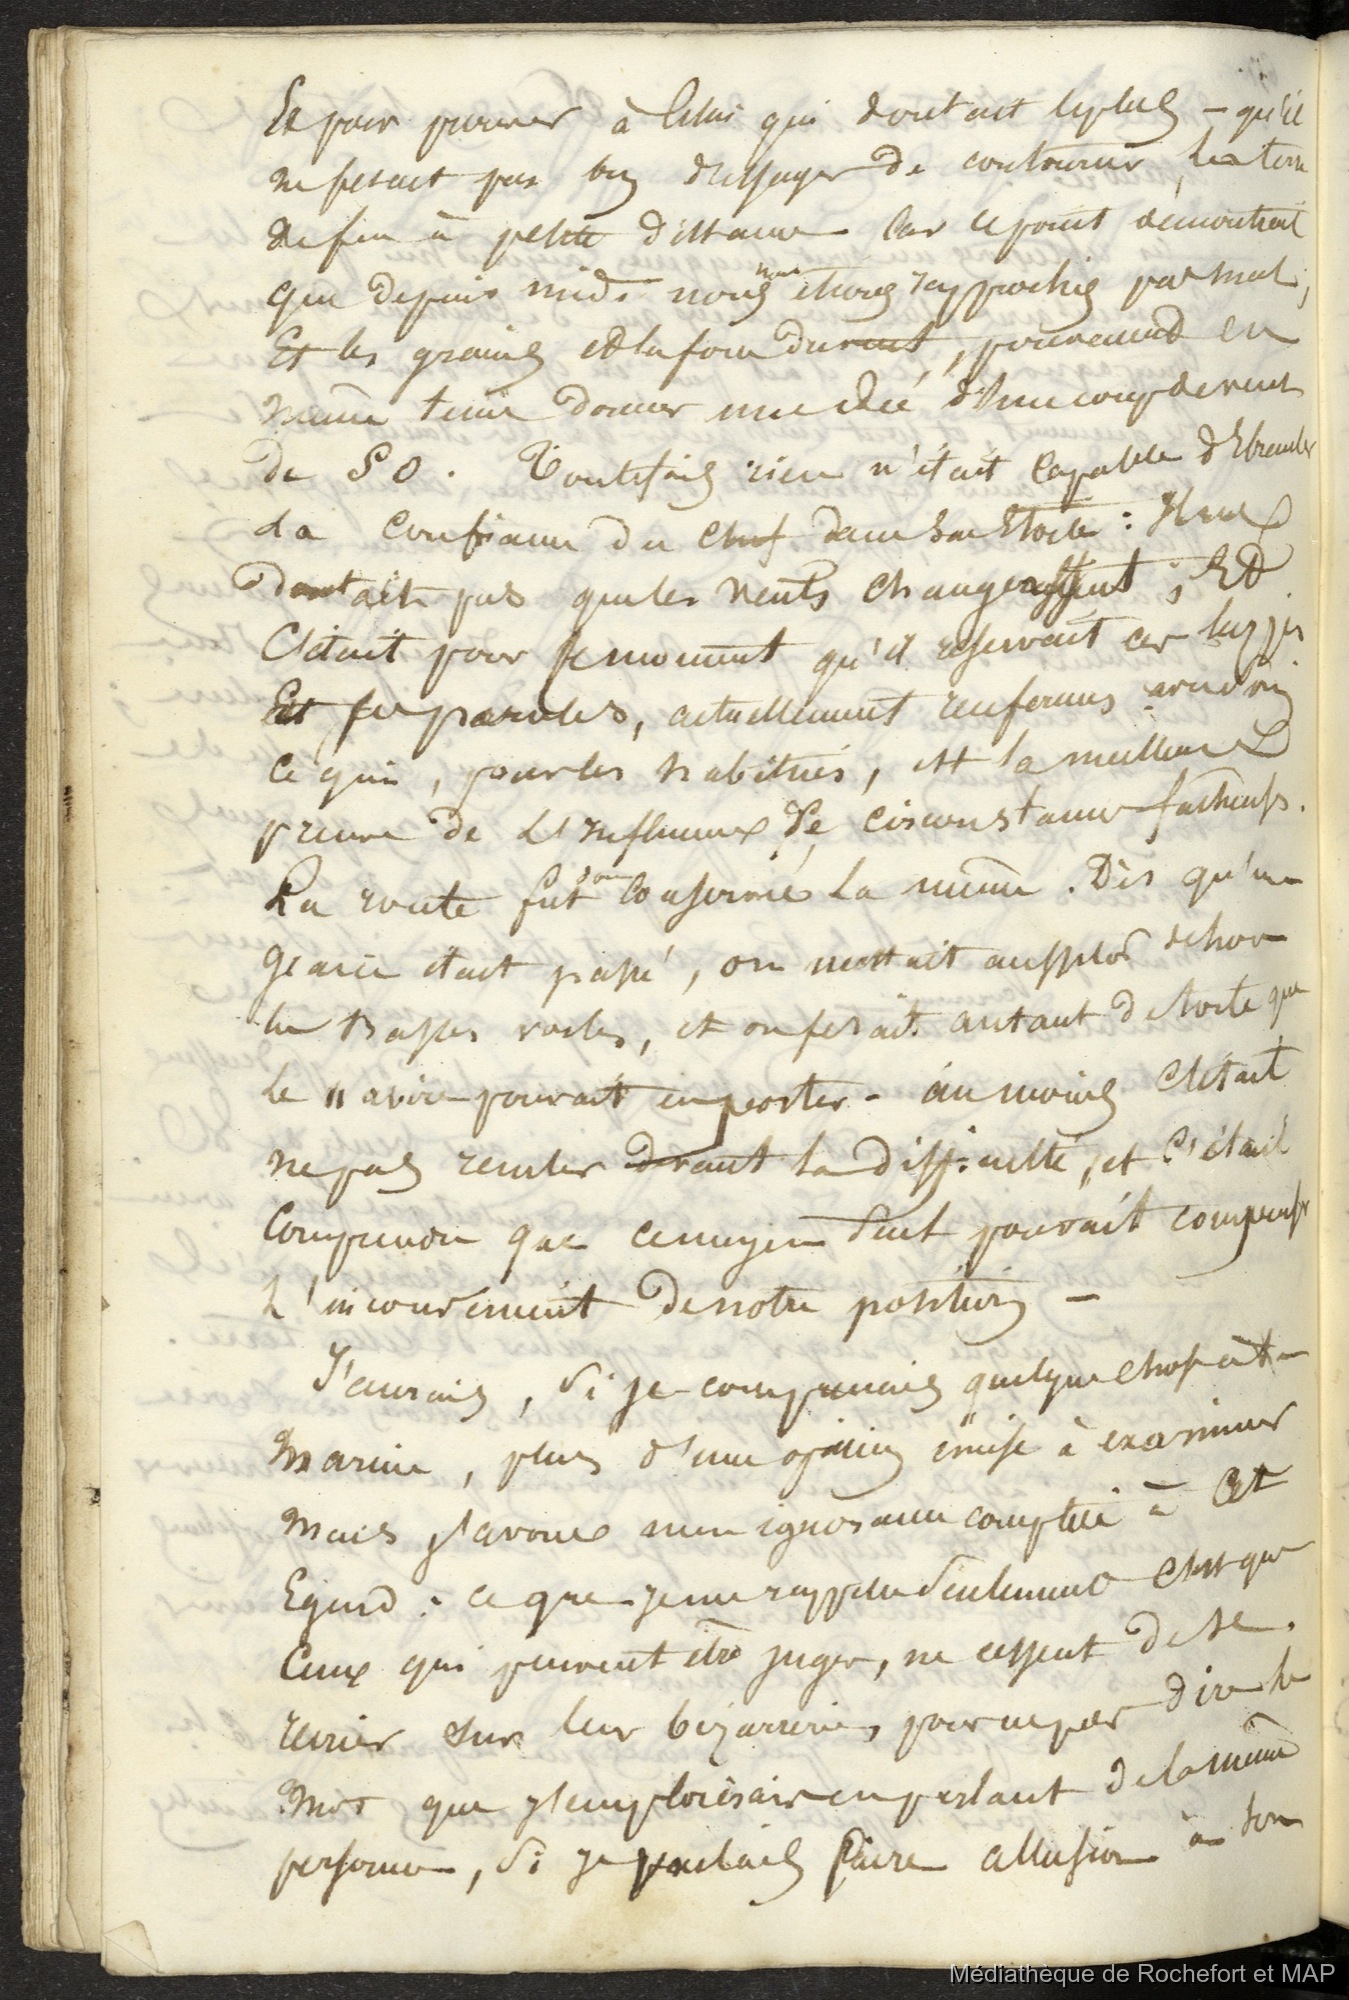 Et pour prouver à celui qui doutait le plus – qu'il
ne fesait pas bon d'essayer de contourner la terre
de feu à petite distance car ce point démontrait
que depuis midi nous nous étions rapprochés par mal;
Et les grains et la force du vent, pouvaient en
même tems donner une idée d'un coup de vent
de S O. Toutefois rien n'était capable d'Ebranler
la confiance du chef dans son Etoile: Il ne
doutait pas que les vents changeassent; Et
C'était pour ce moment qu'il réservait ses lazzis
Et ses paroles, actuellement renfermés
ce qui, pour les habitués, est la meilleure
preuve de L'influence de circonstances fâcheuses.
La route fut donc conservée la même. Dès qu'un
grain était passé, on mettait aussitôt dehors
les basses voiles, et on fesait autant de toile que
le navire pouvait en porter – au moins C'était
ne pas reculer devant la difficulté, et C'était
Comprendre que ce moyen seul pouvait compenser
L'inconvenient de notre position –
J'aurais, si je comprenais quelque chose à la
Marine, plus d'une opinion émise à examiner
Mais j'avoue mon ignorance complète à cet
Egard: ce que je me rappelle seulement C'est que
Ceux qui peuvent être juges, ne cessent de se
récrier sur leur bizarrerie, pour ne pas dire le
Mot que j'emploierais en parlant de la même
personne, si je voulais faire allusion à son
Médiathèque de Rochefort et MAP